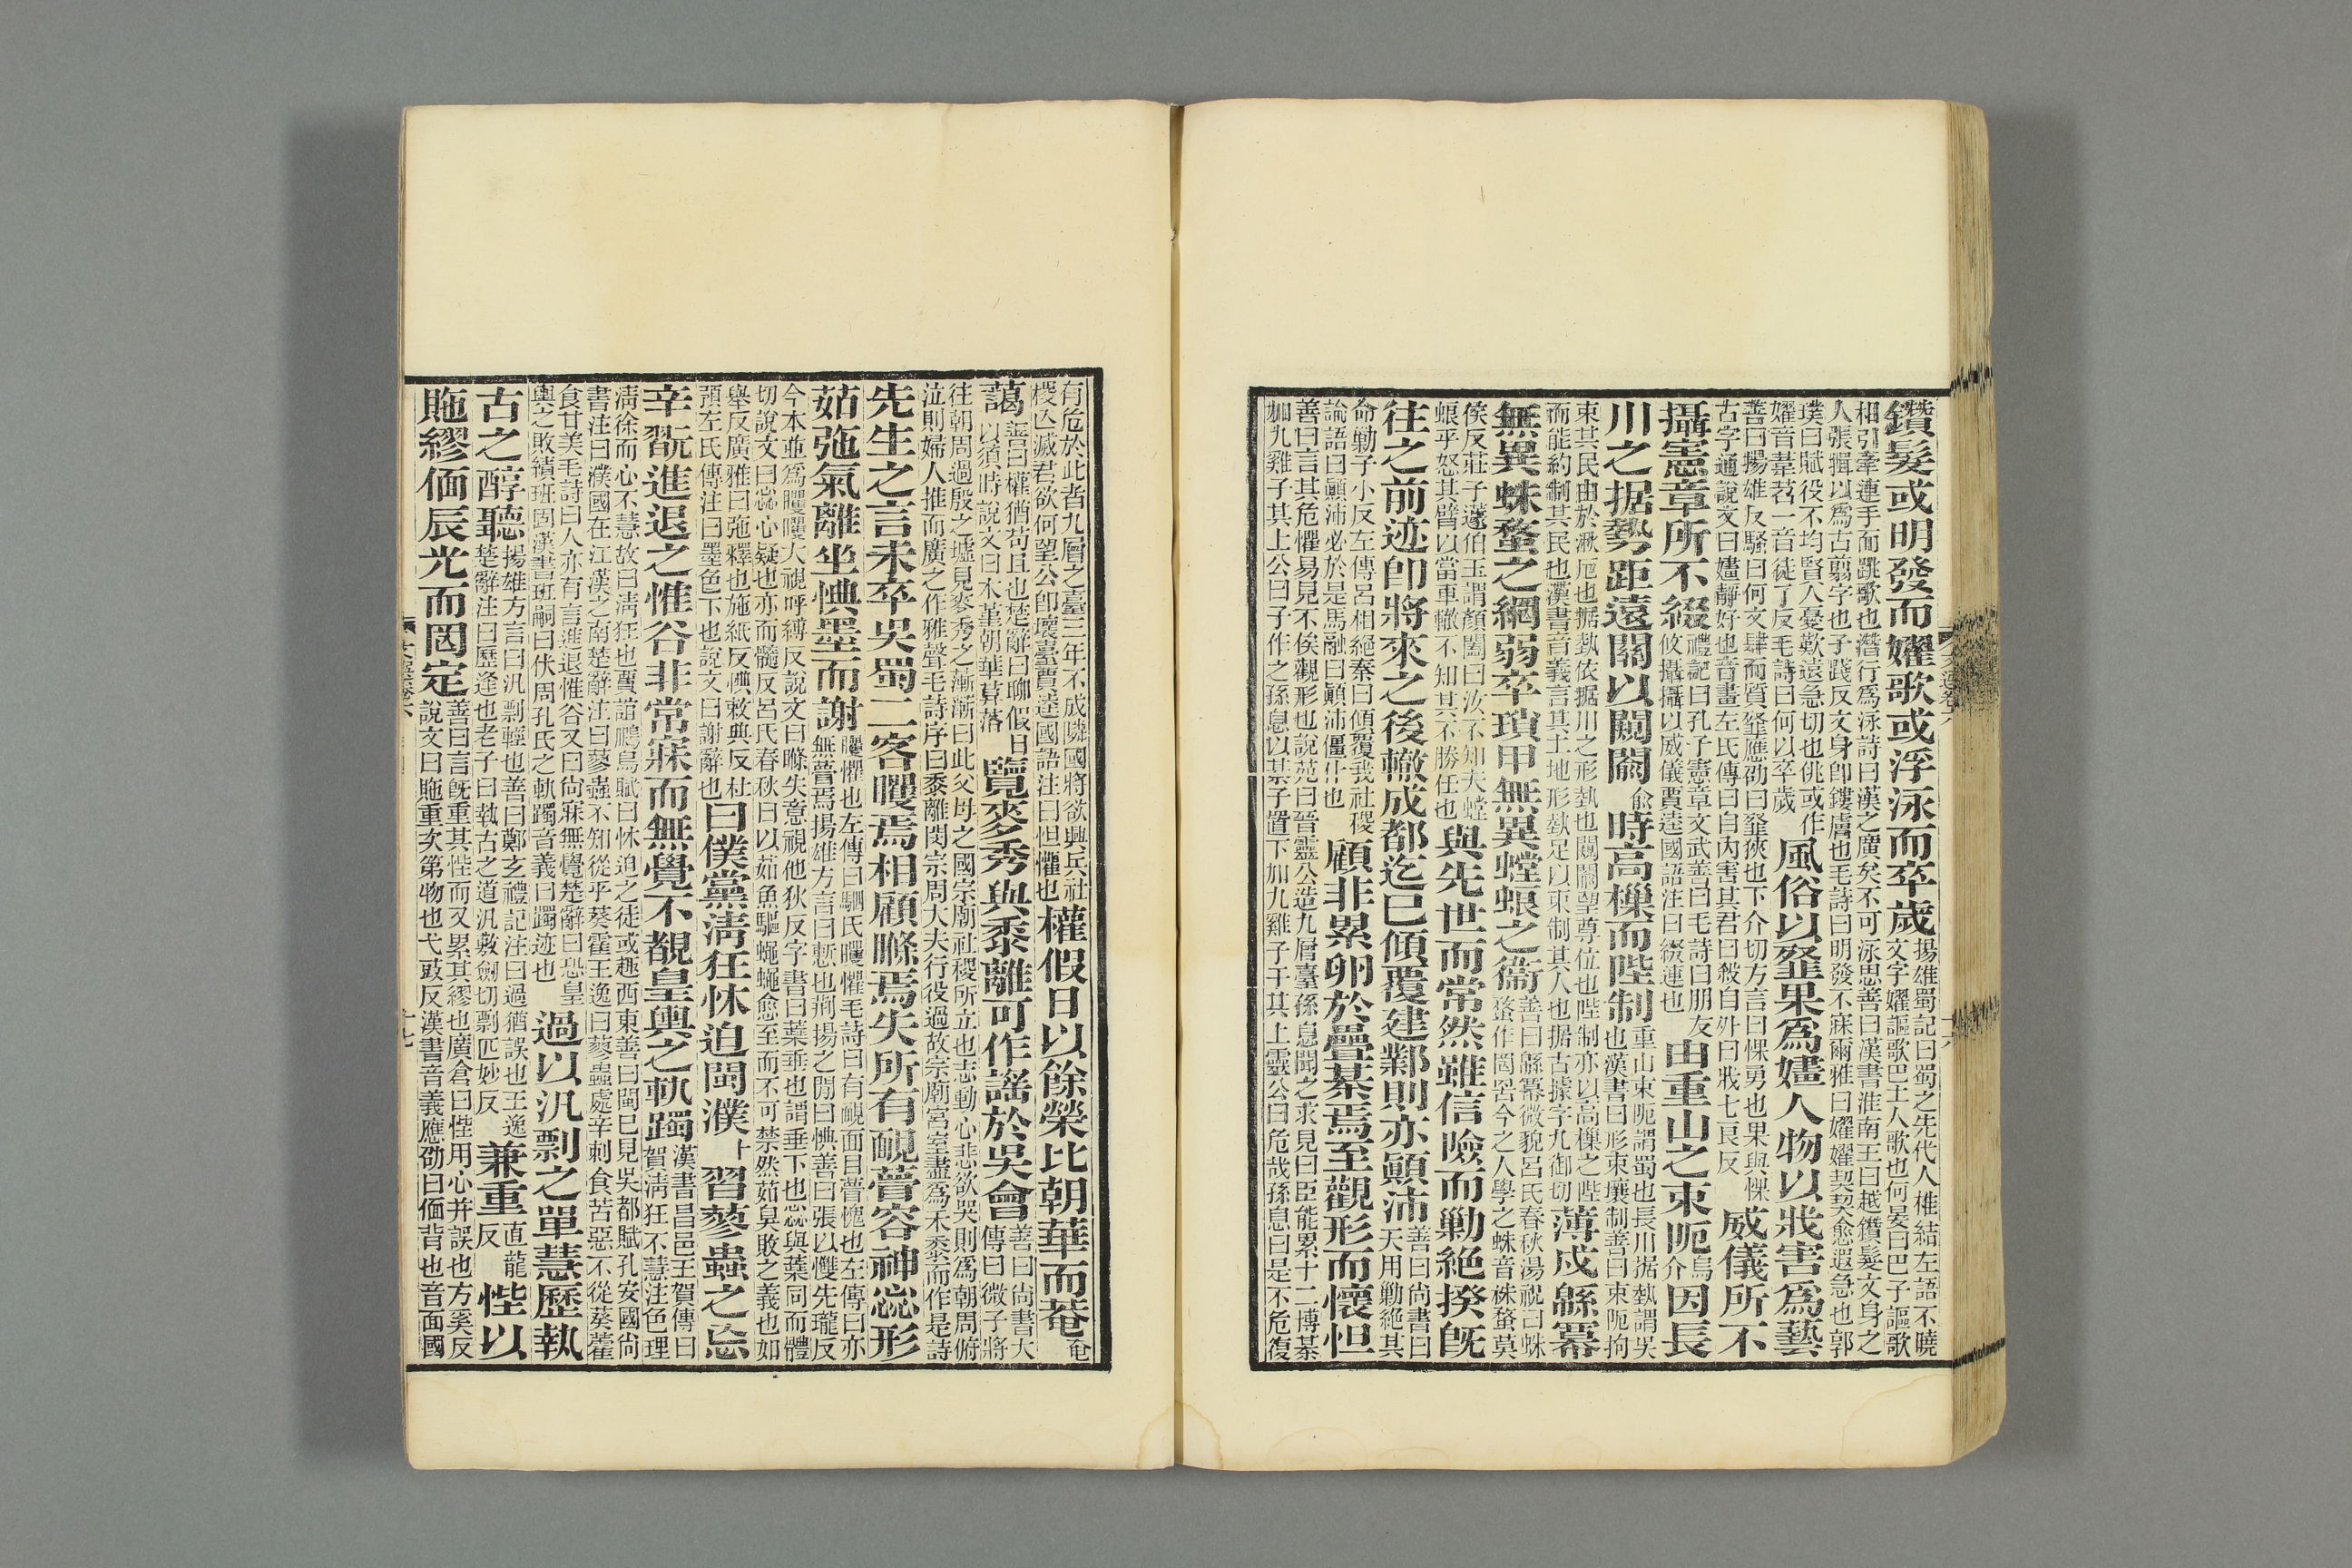 鑽髮或明發而嬥歌或浮泳而卒歲
揚雄蜀記曰蜀之先代人椎結左語不曉
文字嬥謳歌巴土人歌也何晏曰巴子謳歌
相引牽連手而跳歌也潛行為泳詩曰漢之廣矣不可泳思善曰漢書淮南王曰越鑽髮文身之
人張揖以為古翦字也子踐反文身卽鏤膚也毛詩曰明發不寐爾雅曰嬥嬥契契愈遐急也郭
璞曰賦役不均賢人憂歎遠急切也佻或作
嬥音葦苕一音徒了反毛詩曰何以卒歲
風俗以韰果為嫿人物以戕害為藝
善曰揚雄反騷曰何文肆而質韰應劭曰韰狹也下介切方言曰惈勇也果與惈
古字通說文曰嫿靜好也音畫左氏傳曰自內害其君曰殺自外曰戕七良反
威儀所不
攝憲章所不綴
禮記曰孔子憲章文武善曰毛詩曰朋友
攸攝攝以威儀賈逵國語注曰綴連也
由重山之束阨烏介因長
川之据勢距遠關以闚闟俞時高樔而陛制
重山束阨謂蜀也長川据埶謂吳
也漢書曰形束壤制善曰束阨拘
束其民由於湫厄也据埶依据川之形埶也闚闟望尊位也陛制亦以高樔之陛
而能約制其民也漢書音義言其土地形埶足以束制其人也据古據字九御切
薄戍緜冪
無異蛛蝥之網弱卒瑣甲無異螳蜋之衞
善曰緜冪微貌呂氏春秋湯祝曰蛛
蝥作罔罟今之人學之蛛音株蝥莫
侯反莊子蘧伯玉謂顏闔曰汝不知夫螳
蜋乎怒其臂以當車轍不知其不勝任也
與先世而常然雖信險而勦絕揆旣
往之前迹卽將來之後轍成都迄已傾覆建鄴則亦顚沛
善曰尚書曰
天用勦絕其
命勦子小反左傳呂相絕秦曰傾覆我社稷
論語曰顚沛必於是馬融曰顚沛僵仆也
顧非累卵於疊棊焉至觀形而懷怛
善曰言其危懼易見不俟觀形也說苑曰晉靈公造九層臺孫息聞之求見曰臣能累十二博棊
加九雞子其上公曰子作之孫息以棊子置下加九雞子于其上靈公曰危哉孫息曰是不危復
有危於此者九層之臺三年不成隣國將欲興兵社
稷亡滅君欲何望公卽壞臺賈逵國語注曰怛懼也
權假日以餘榮比朝華而菴奄
藹
善曰權猶苟且也楚辭曰聊假日
以須時說文曰木堇朝華暮落
覽麥秀與黍離可作謠於吳會
善曰尚書大
傳曰微子將
往朝周過殷之墟見麥秀之漸漸曰此父母之國宗廟社稷所立也志動心悲欲哭則為朝周俯
泣則婦人推而廣之作雅聲毛詩序曰黍離閔宗周大夫行役過故宗廟宮室盡為禾黍而作是詩
先生之言未卒吳蜀二客矍焉相顧䠆焉失所有靦瞢容神惢形
茹弛氣離坐㥏墨而謝
矍懼也左傳曰駟氏矍懼毛詩曰有靦面目瞢愧也左傳曰亦
無瞢焉揚雄方言曰慙也荊揚之閒曰㥏善曰張以㦜先瓏反
今本並為矍矍大視呼縛反說文曰䠆失意視他狄反字書曰蘂垂也謂垂下也惢與蘂同而髓
切說文曰惢心疑也亦而髓反呂氏春秋曰以茹魚驅蠅蠅愈至而不可禁然茹臭敗之義也如
舉反廣雅曰弛釋也施紙反㥏敕典反杜
預左氏傳注曰墨色下也說文曰謝辭也
曰僕黨淸狂怵迫閩濮卜習蓼蟲之忘
辛翫進退之惟谷非常寐而無覺不覩皇輿之軌躅
漢書昌邑王賀傳曰
賀淸狂不慧注色理
淸徐而心不慧故曰淸狂也賈誼鵩鳥賦曰怵迫之徒或趨西東善曰閩已見吳都賦孔安國尚
書注曰濮國在江漢之南楚辭注曰蓼蟲不知從乎葵霍王逸曰蓼蟲處辛刺食苦惡不從葵藿
食甘美毛詩曰人亦有言進退惟谷又曰尚寐無覺楚辭曰恐皇
輿之敗績班固漢書班嗣曰伏周孔氏之軌躅音義曰躅迹也
過以汎剽之單慧歷執
古之醇聽
揚雄方言曰汎剽輕也善曰鄭玄禮記注曰過猶誤也王逸
楚辭注曰歷逢也老子曰執古之道汎敷劒切剽匹妙反
兼重直龍反悂以
貤繆偭辰光而罔定
善曰言旣重其悂而又累其繆也廣倉曰悂用心并誤也方奚反
說文曰貤重次第物也弋豉反漢書音義應劭曰偭背也音面國
文選卷六
十七